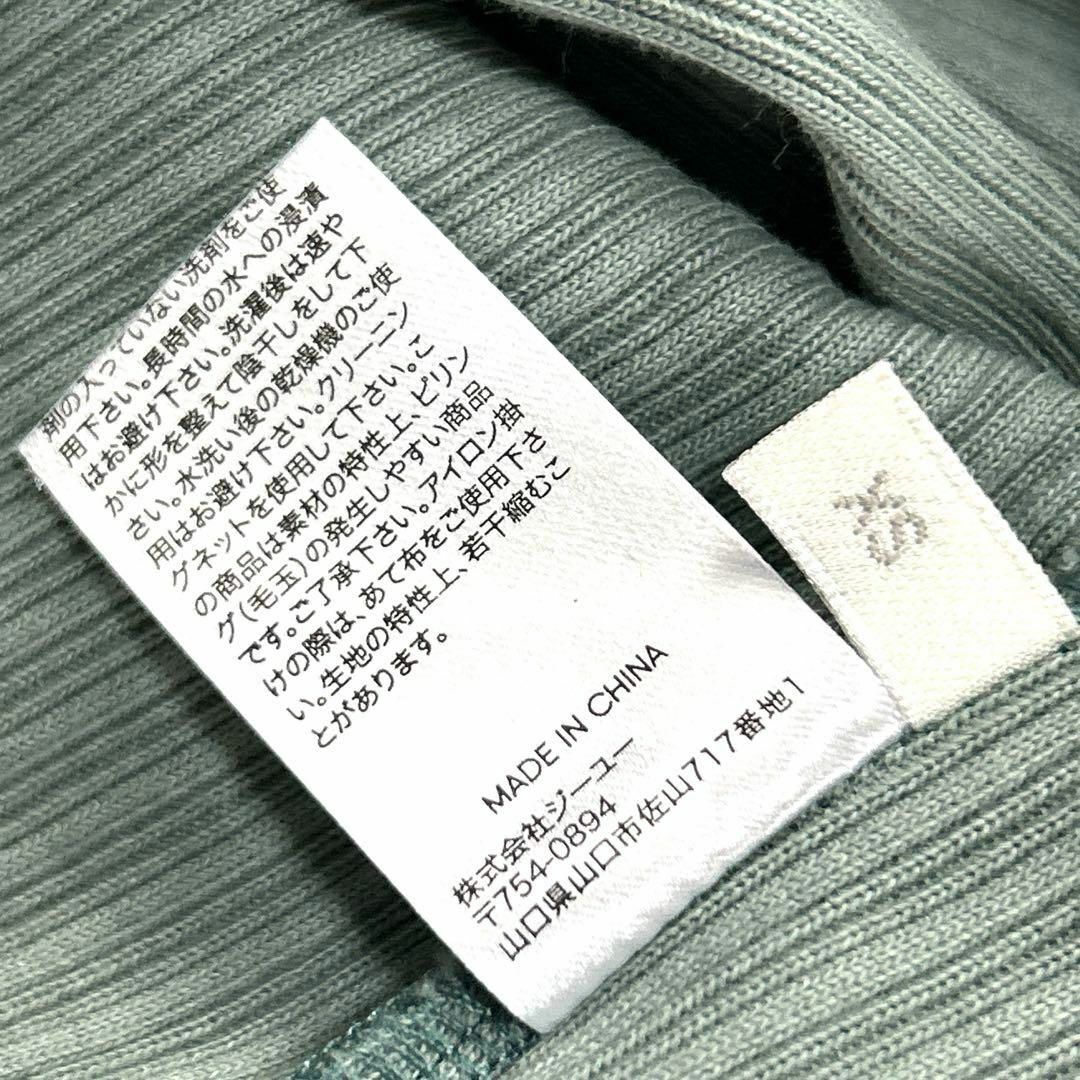 剤の入っていない洗剤をご使
用下さい。長時間の水への浸漬
はお避け下さい。洗濯後は速や
かに形を整えて陰干しをして下
さい。水洗い後の乾燥機のご使
用はお避け下さい。クリーニン
グネットを使用して下さい。こ
の商品は素材の特性上、ピリン
グ(毛玉)の発生しやすい商品
です。ご了承下さい。アイロン掛
けの際は、あて布をご使用下さ
い。生地の特性上、若干縮むこ
とがあります。
MADE IN CHINA
株式会社ジーユー
〒754-0894
山口県山口市佐山717番地1